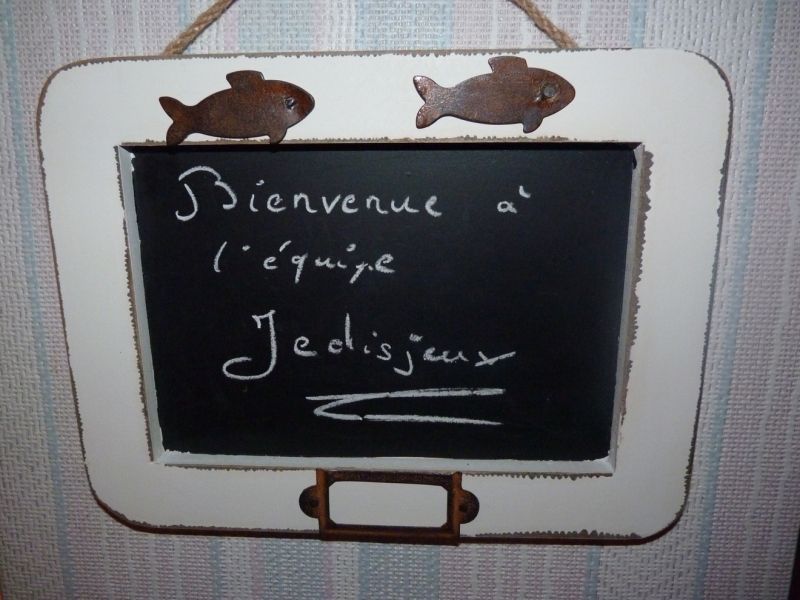 Bienvenue à
l'équipe
Jedisjeux